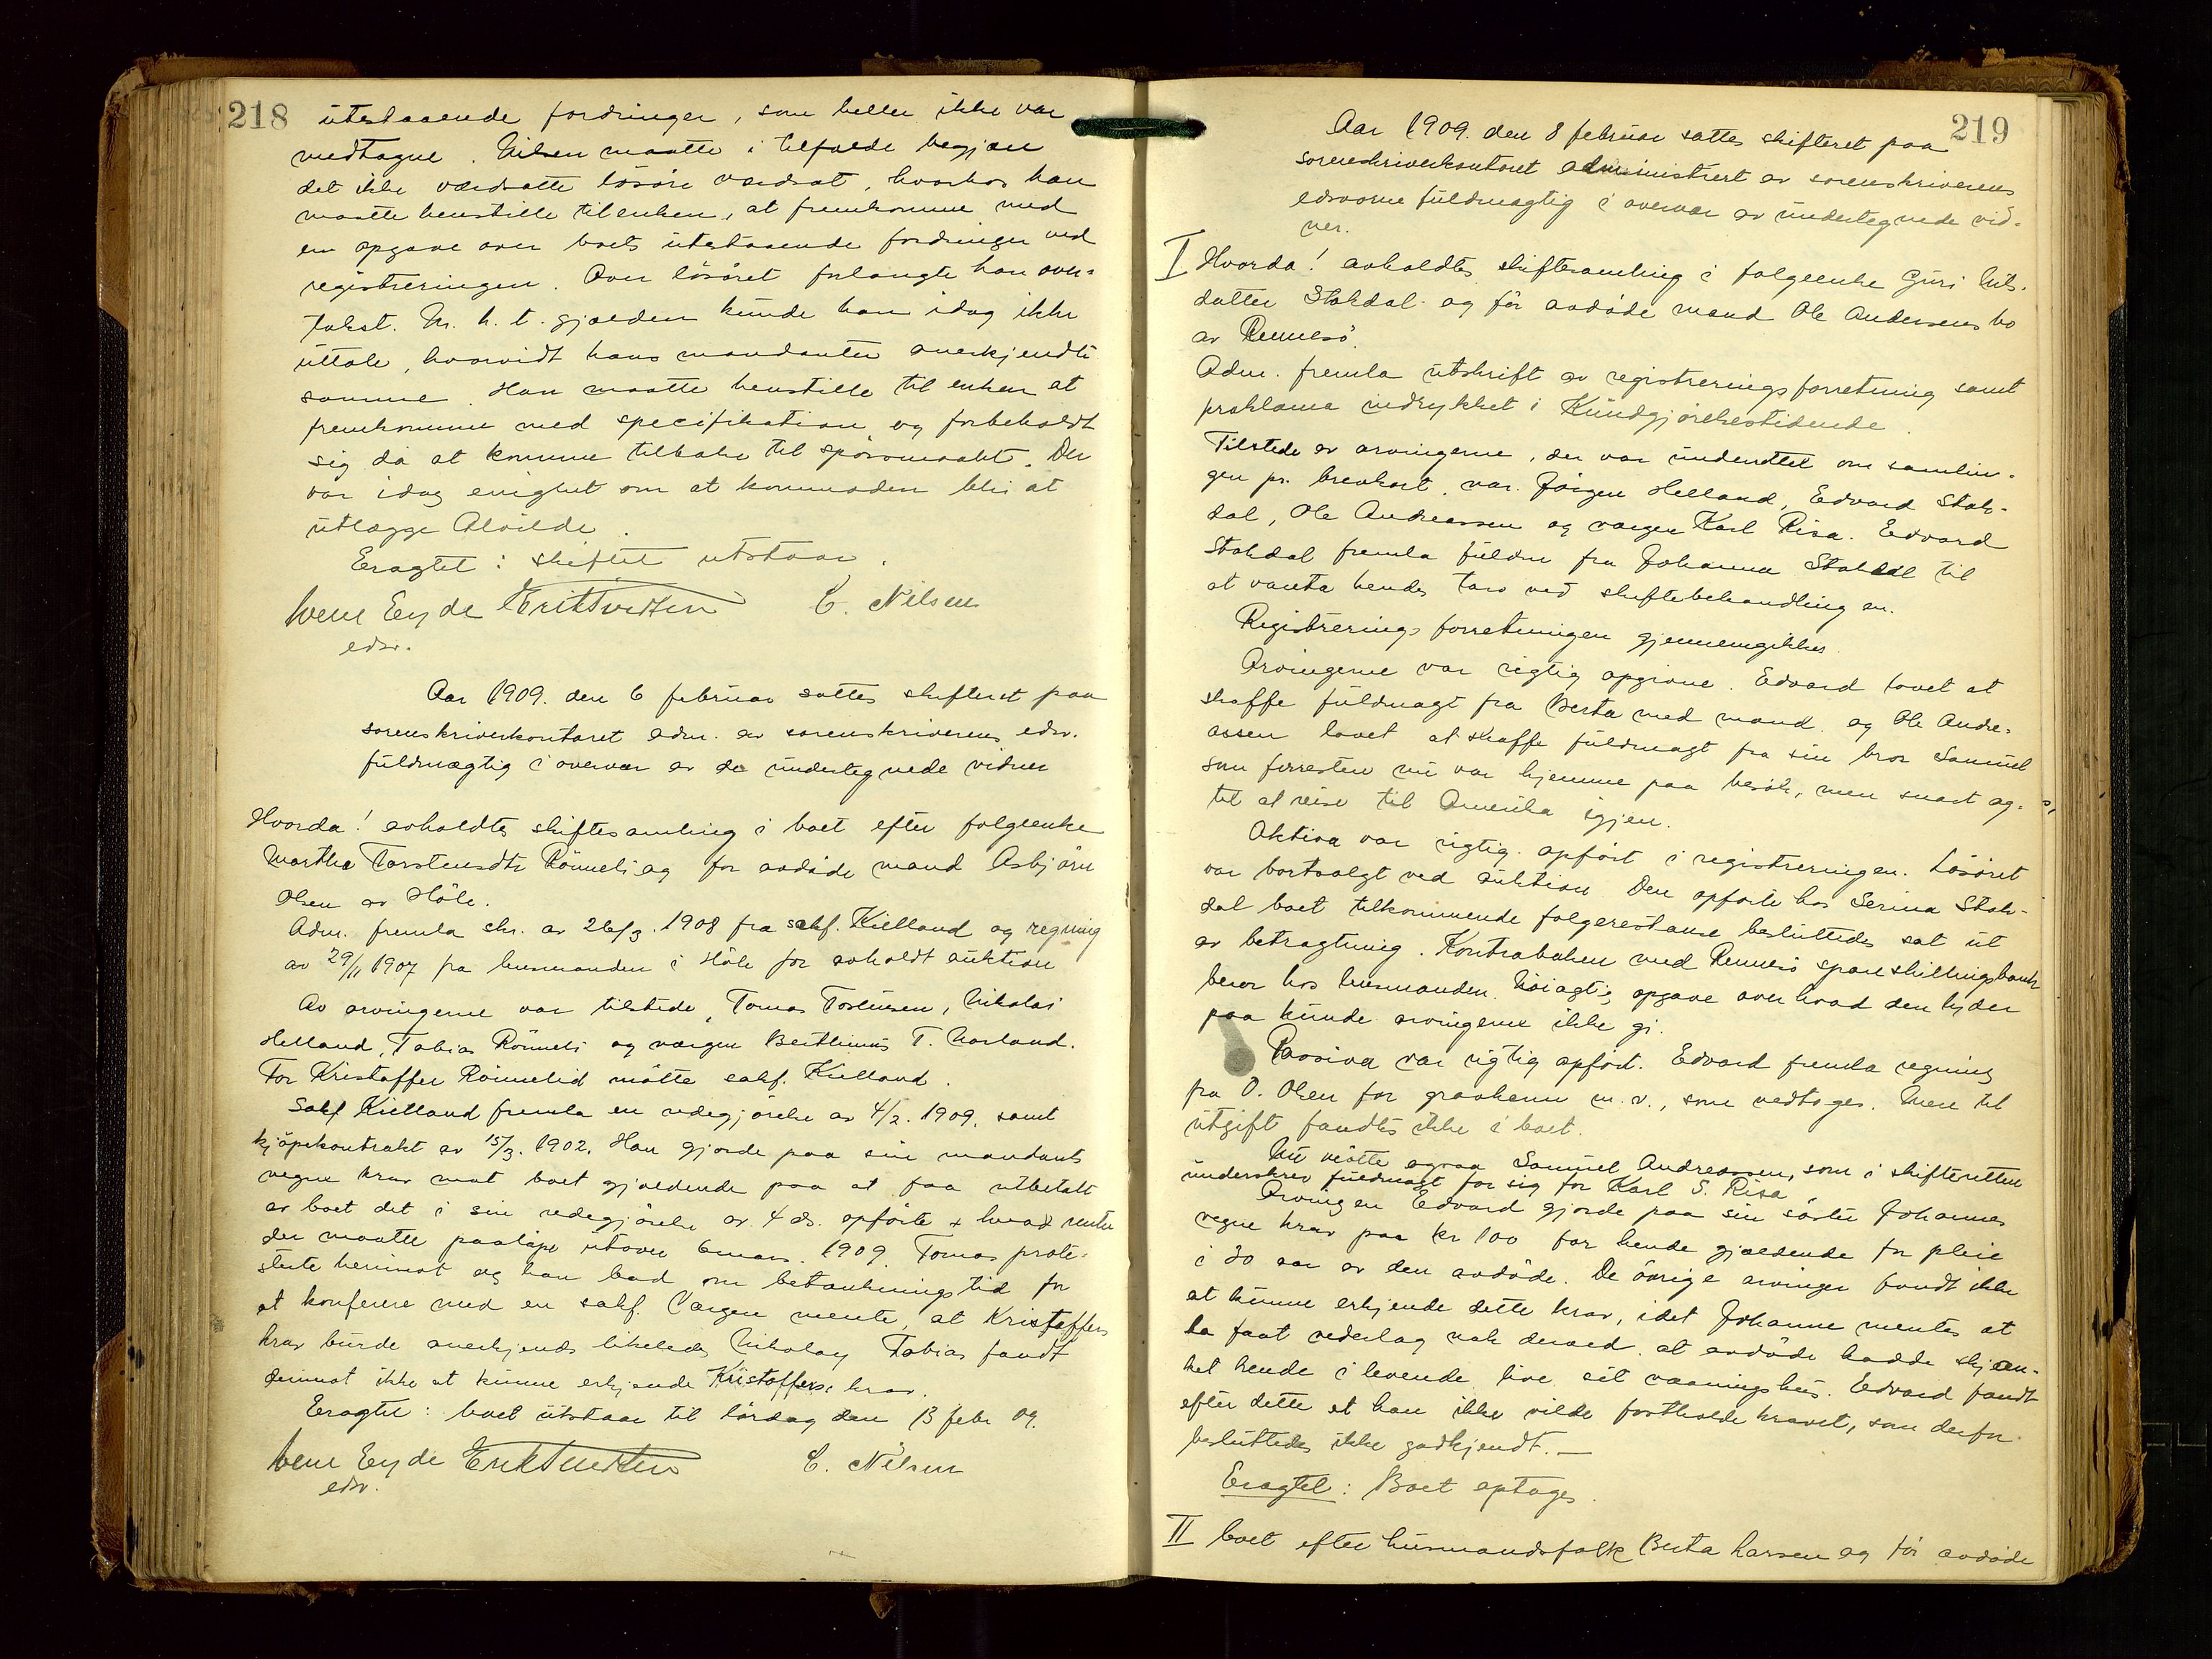 218
utestaaende fordringer, som heller ikke var
medtagne. Nilsen maatte i tilfælde begjære
det ikke værdsatte løsøre værdsat, hvorhos han
maatte henstille til enken, at fremkomme med
en opgave over boets utestaaende fordringer ved
registreringen. Over løsøret forlangte han over-
takst. M. h. t. gjælden kunde han idag ikke
uttale, hvorvidt hans mandanter anerkjendte
samme. Han maatte henstille til enken at
fremkomme med specifikation og forbeholdt
sig da at komme tilbake til spørsmaalet. Der
var idag enighet om at kommoden blir at
utlægge Alvilde.
Eragtet: skiftet utstaar.
Eyde Erik Tveten C. Nilsen
edsv.
Aar 1909. den 6 februar sattes skifteret paa
sorenskriverkontoret adm. av sorenskriverens edsv.
fuldmægtig i overvær av de undertegnede vidner
Hvorda! avholdtes skiftesamling i boet efter følgeenke
Martha Torstensdtr Rönneli og før avdøde mand Asbjørn
Olsen av Høle.
Adm. fremla skr. av 26/3. 1908 fra sakf. Kielland og regning
av 29/11 1907 fra lensmanden i Høle for avholdt auktion
Av arvingerne var tilstede, Tomas Torstensen, Nikolai
Helland, Tobias Rönneli og værgen Berthinius T. Norland.
For Kristoffer Rönnelid møtte sakf. Kielland.
Sakf Kielland fremla en redegjørelse av 4/2. 1909. samt
kjøpekontrakt av 15/3. 1902. Han gjorde paa sin mandants
vegne krav mot boet gjældende paa at faa utbetalt
av boet det i sin redegjørelse av 4 ds. opførte + hvad renter
der maatte paaløpe utover 6 mars 1909. Tomas prote-
sterte herimot og han bad om betænkningstid for
at konferere med en sakf. Værgen mente, at Kristoffers
krav burde anerkjendes likeledes Nikolay Tobias fandt
derimot ikke at kunne erkjende Kristoffers krav.
Eragtet: boet utstaar til lørdag den 13 febr 09.
Eyde Erik Tveten C. Nilsen
edsv.
219
Aar 1909. den 8 februar sattes skifteret paa
sorenskriverkontoret administrert av sorenskriverens
edsvorne fuldmægtig i overvær av undertegnede vid-
ner.
I Hvorda! avholdtes skiftesamling i følgeenke Guri Nils-
datter Stokdal og før avdøde mand Ole Andersens bo
av Rennesø.
Adm. fremla utskrift av registreringsforretning samt
proklama indrykket i Kundgjørelsestidende.
Tilstede av arvingerne, der var underrettet om samlin-
gen pr. brevkort, var. Jørgen Helland, Edvard Stok-
dal, Ole Andreassen og værgen Karl Risa. Edvard
Stokdal fremla fuldm fra Johanna Stokdal til
at vareta hendes tarv ved skiftebehandlingen.
Registreringsforretningen gjennemgikkes.
Arvingerne var rigtig opgivne. Edvard lovet at
skaffe fuldmagt fra Berta med mand og Ole Andre-
assen lovet at skaffe fuldmagt fra sin bror Samuel
som forresten nu var hjemme paa besøk, men snart ag-
til at reise til Amerika igjen.
Aktiva var rigtig opført i registreringen. Løsøret
var bortsolgt ved auktion. Den opførte hos Serina Stok-
dal boet tilkommende følgerestanse besluttedes sat ut
av betragtning. Kontrabøken med Rennesø spareskillingsbank
beror hos lensmanden. Nøiagtig opgave over hvad den lyder
paa kunde arvingerne ikke gi.
Passiva var rigtig opført. Edvard fremla regning
fra O. Olsen for m. v., som vedtoges. Mere til
utgift fandtes ikke i boet.
Nu møtte ogsaa Samuel Andreassen, som i skifteretten
underskrev fuldmagt for sig for Karl S. Risa.
Arvingen Edvard gjorde paa sin søster Johannes
vegne krav paa kr 100 for hende gjældende for pleie
i 20 aar av den avdøde. De øvrige arvinger fandt ikke
at kunne erkjende dette krav, idet Johanne mentes at
ha faat vederlag nok derved. at avdøde hadde skjæn-
ket hende i levende live sit vaaningshus. Edvard fandt
efter dette at han ikke vilde fastholde kravet, som derfor
besluttedes ikke godkjendt. —
Eragtet: Boet optages.
II boet efter husmandsfolk Berta Larsen og før avdøde